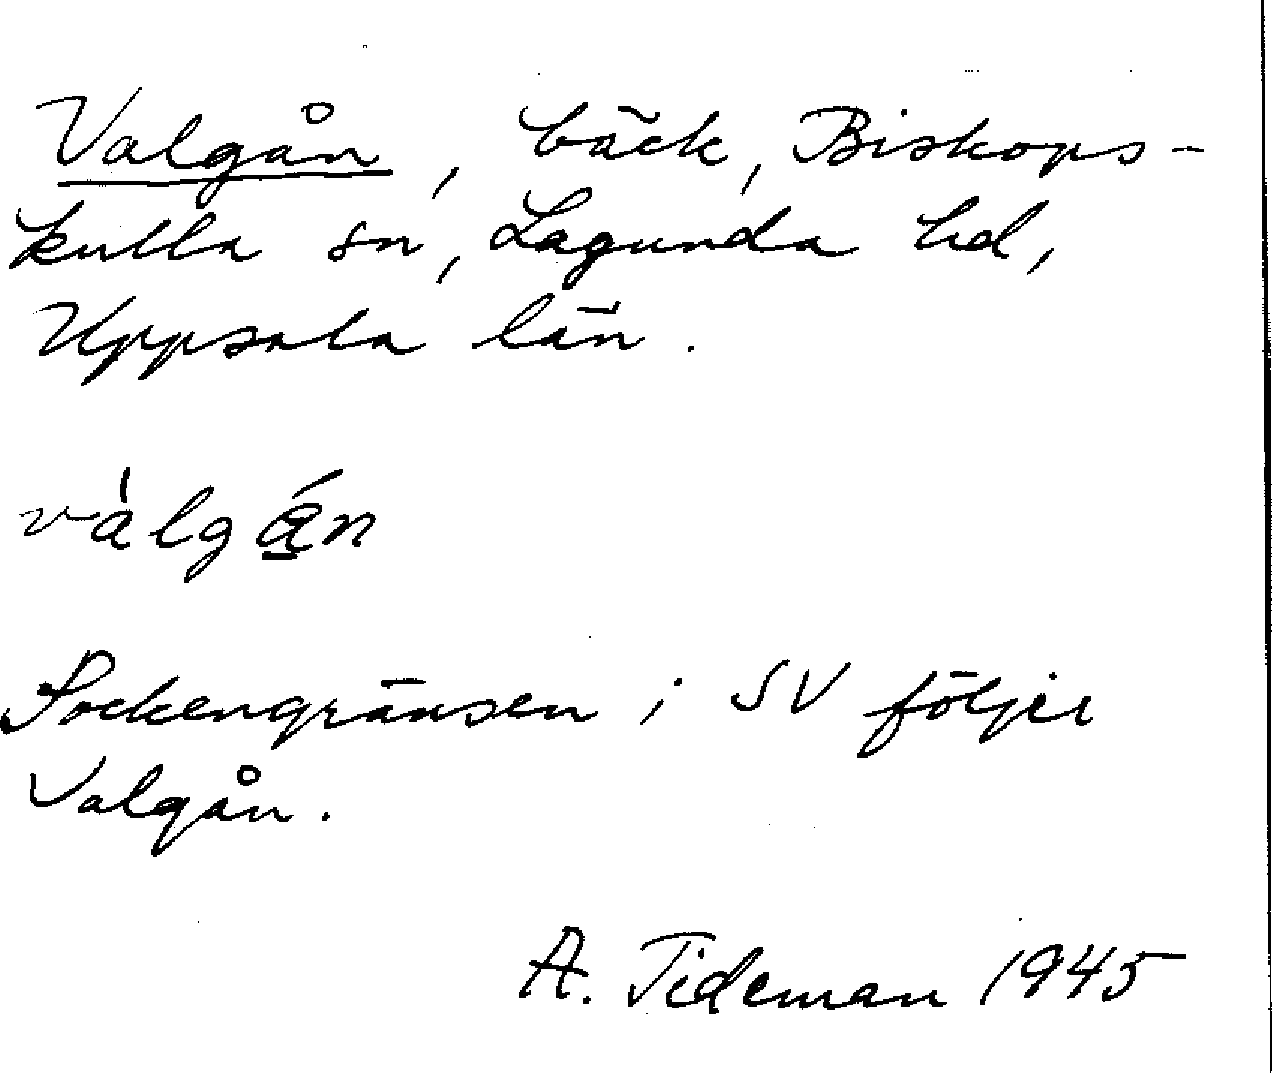 Valgån, bäck, Biskops-
kulla sn, Lagunda hd,
Uppsala län.
vàlgá̱n
Sockengränsen i SV följer
Valgån.
A. Tideman 1945